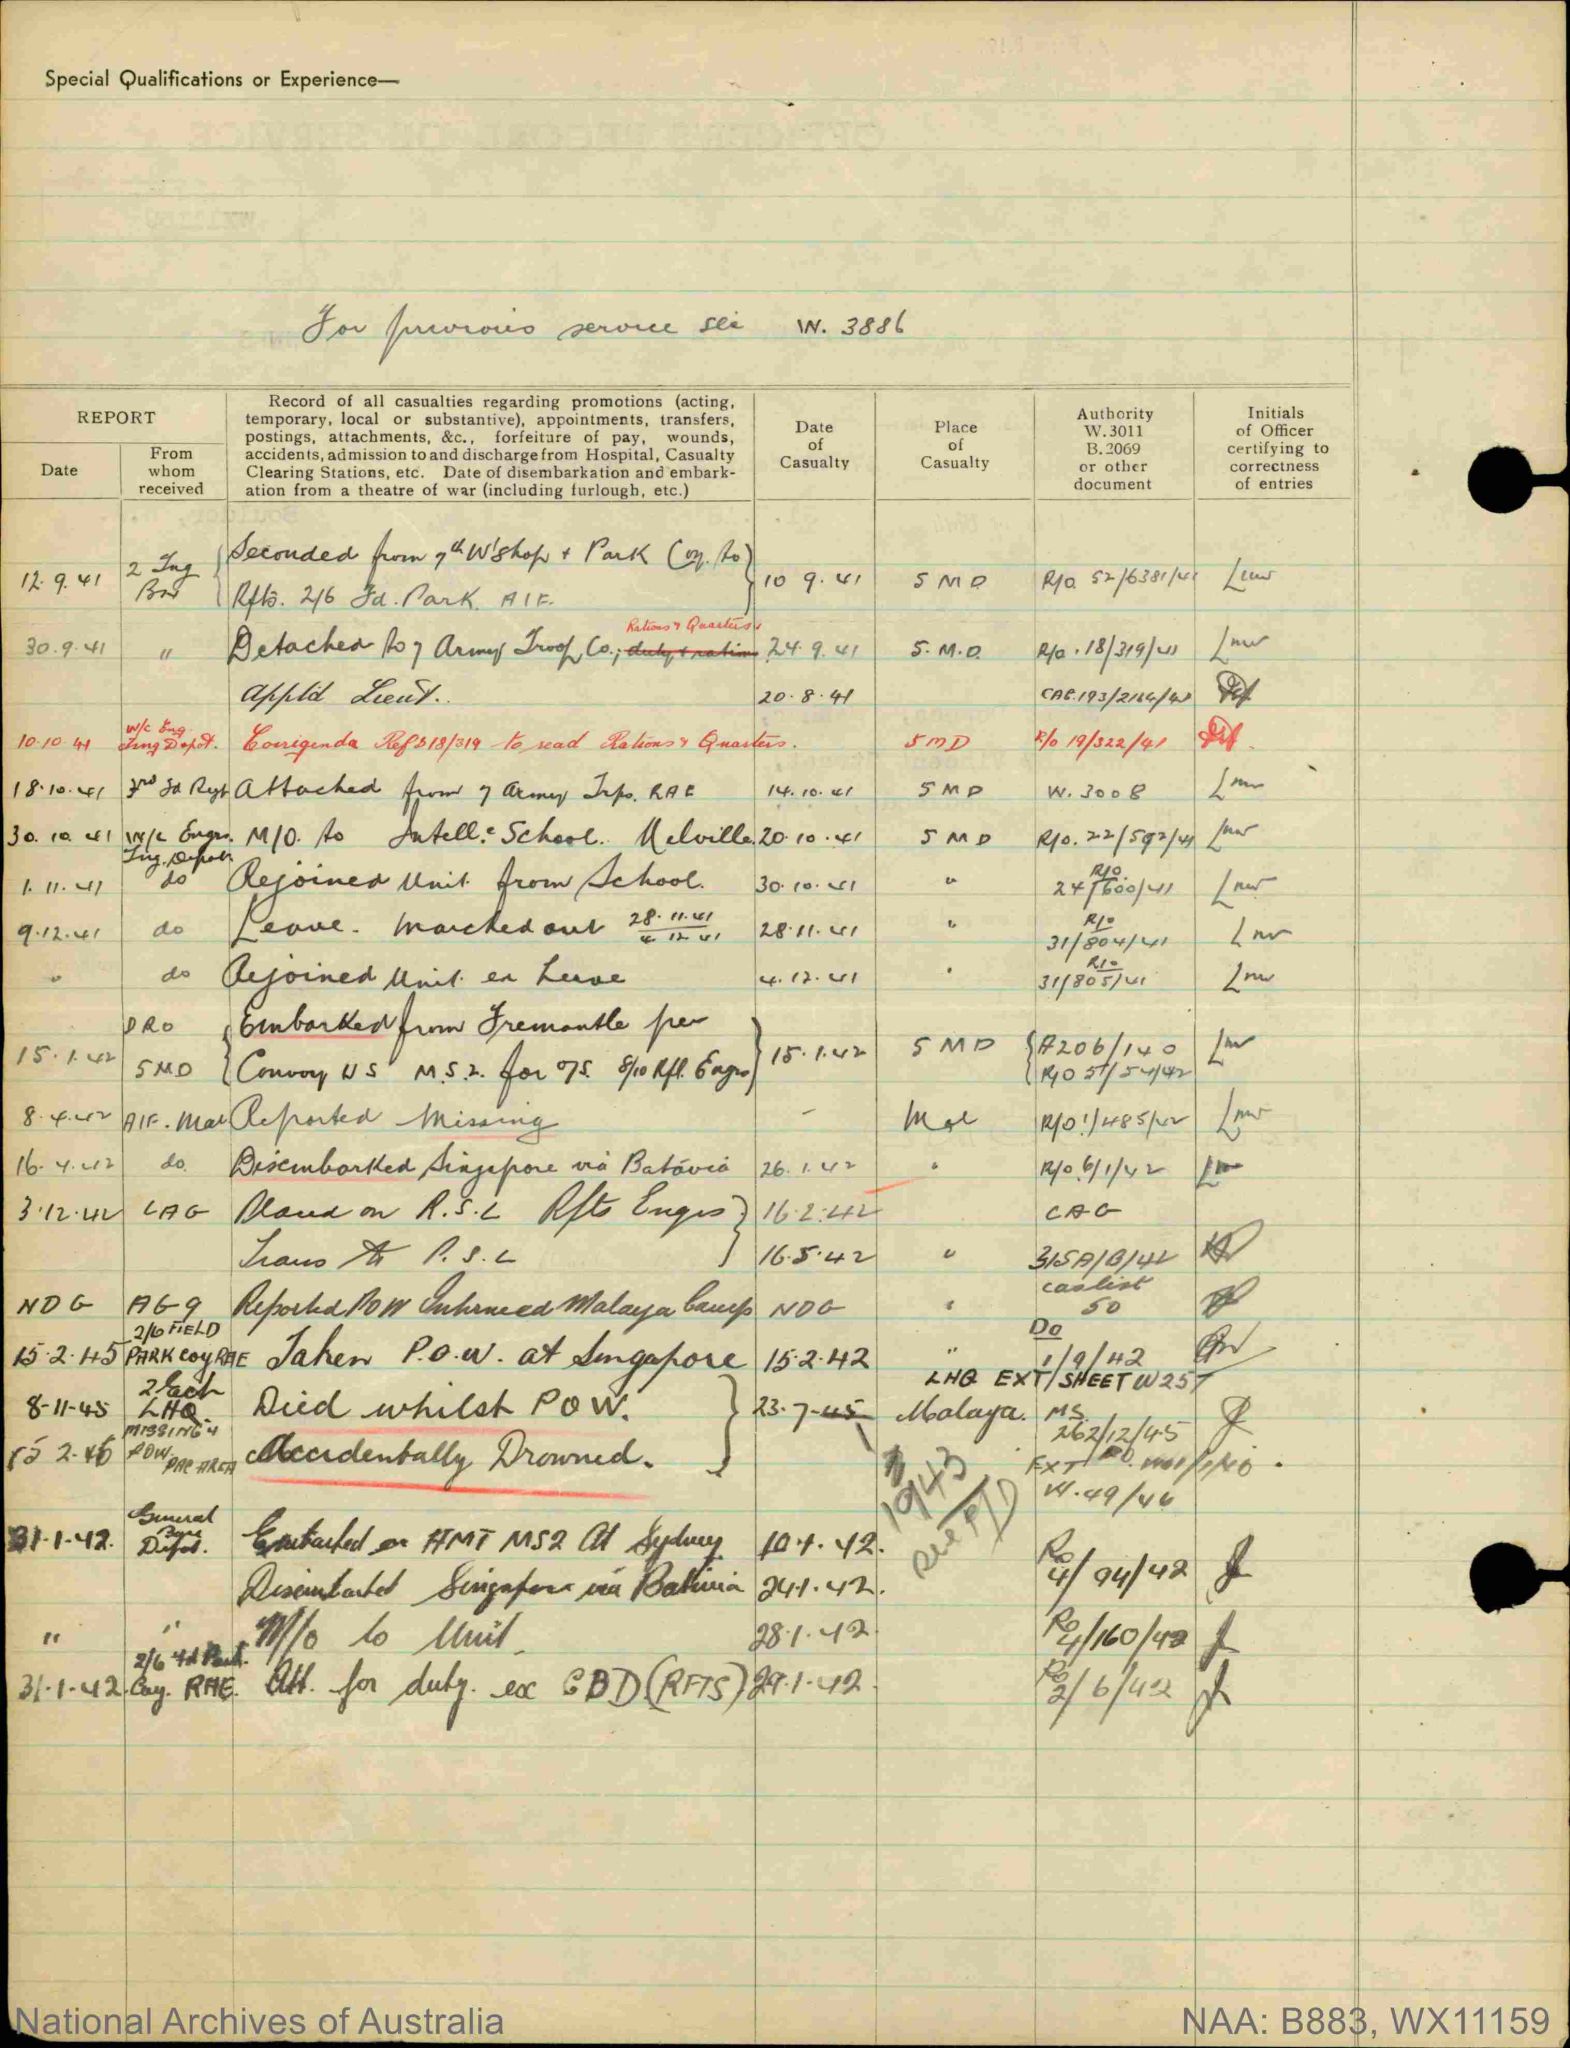 Special Qualifications or Experience—
For previous service see W. 3886
REPORT
Date
From whom received
Record of all casualties regarding promotions (acting,
temporary, local or substantive), appointments, transfers,
postings, attachments, &c., forfeiture of pay, wounds,
accidents, admission to and discharge from Hospital, Casualty
Clearing Stations, etc. Date of disembarkation and embark-
ation from a theatre of war (including furlough, etc.)
Date of Casualty
Place of Casualty
Authority W.3011 B.2069 or other document
Initials of Officer certifying to correctness of entries
Seconded from 7th W'shop & Park Coy. to
12.9.41 2 Tng Bn Rfts. 2/6 Fd. Park. AIF. 10 9.41 5 M D R/O 52/6381/41
Rations & Quarters
30.9.41 " Detached to 7 Army Troop Co., duty & rations 24.9.41 5.M.D. R/O.18/319/41
Appt'd Lieut. 20.8.41
10.10.41 W/C Eng. Trng Depot. Corrigenda Ref 18/319 to read Rations & Quarters. 5 M D R/o 19/322/41
18.10.41 3rd Fd Regt Attached from 7 Army Trps. RAE 14.10.41 5 M D W.3008
30.10.41 W/C Engrs. Tng. Depot M/O. to Intell. School. Melville. 20.10.41 5 M D R/O. 22/592/41
1.11.41 do Rejoined Unit from School. 30.10.41 " R/O 24/600/41
9.12.41 do Leave. Marched out 28.11.41 4.12.41 28.11.41 " R/O 31/804/41
" do Rejoined Unit ex Leave 4.12.41 " R/O 31/805/41
DRO Embarked from Fremantle per
15.1.42 5MD Convoy US M.S.2. for O/S. 8/10 Rft. Engrs 15.1.42 5 M D A206/140
R/O 5/54/42
8.4.42 AIF. Mal Reported Missing - Mal R/O 1/485/42
16.4.42 do. Disembarked Singapore via Batavia 26.1.42 " R/O 6/1/42
3.12.42 CAG Placed on R.S.L Rfts Engrs 16.2.42 CAG
Trans to P.S.L 16.5.42 " 315A/B/42
NDG AG 9 Reported POW Interned Malaya Camp NDG " caslist 50
15.2.45 2/6 FIELD PARK COY RAE Taken P.O.W. at Singapore 15.2.42 " Do 1/9/42
LHQ EXT/SHEET W257
8-11-45 2 Ech LHQ. Died whilst P O W. 23-7-45 Malaya. MS. 262/12/45
15 2.46 MISSING & POW PAC AREA Accidentally Drowned. EXT
W.49/46
10/43
see P/D
31-1-42. General Base Depot. Embarked on HMT MS2 At Sydney 10.1.42. Ro 4/94/42
Disembarked Singapore via Batavia 24.1.42.
" " M/o to Unit 28.1.42 Ro 4/160/42
31-1-42. 2/6 Fd Park Coy. RAE. Att. for duty. ex GBD (RFTS) 29.1.42. Ro 2/6/42
National Archives of Australia
NAA: B883, WX11159